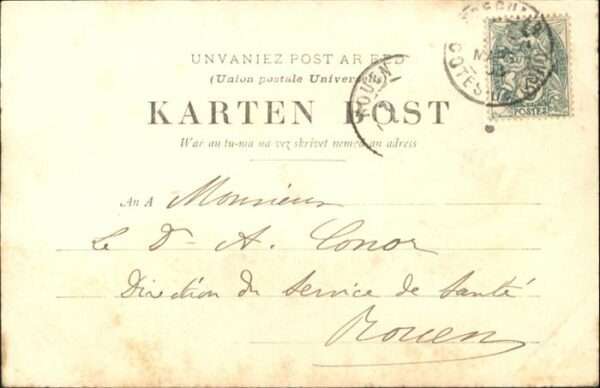 UNVANIEZ POST AR BED
(Union postale Universelle)
KARTEN POST
War an tu-ma na vez skrivet nemed an adress
An A Monsieur
Le Dr A. Conor
Direction du Service de Santé
Rouen
ROUEN
COTES
POSTES